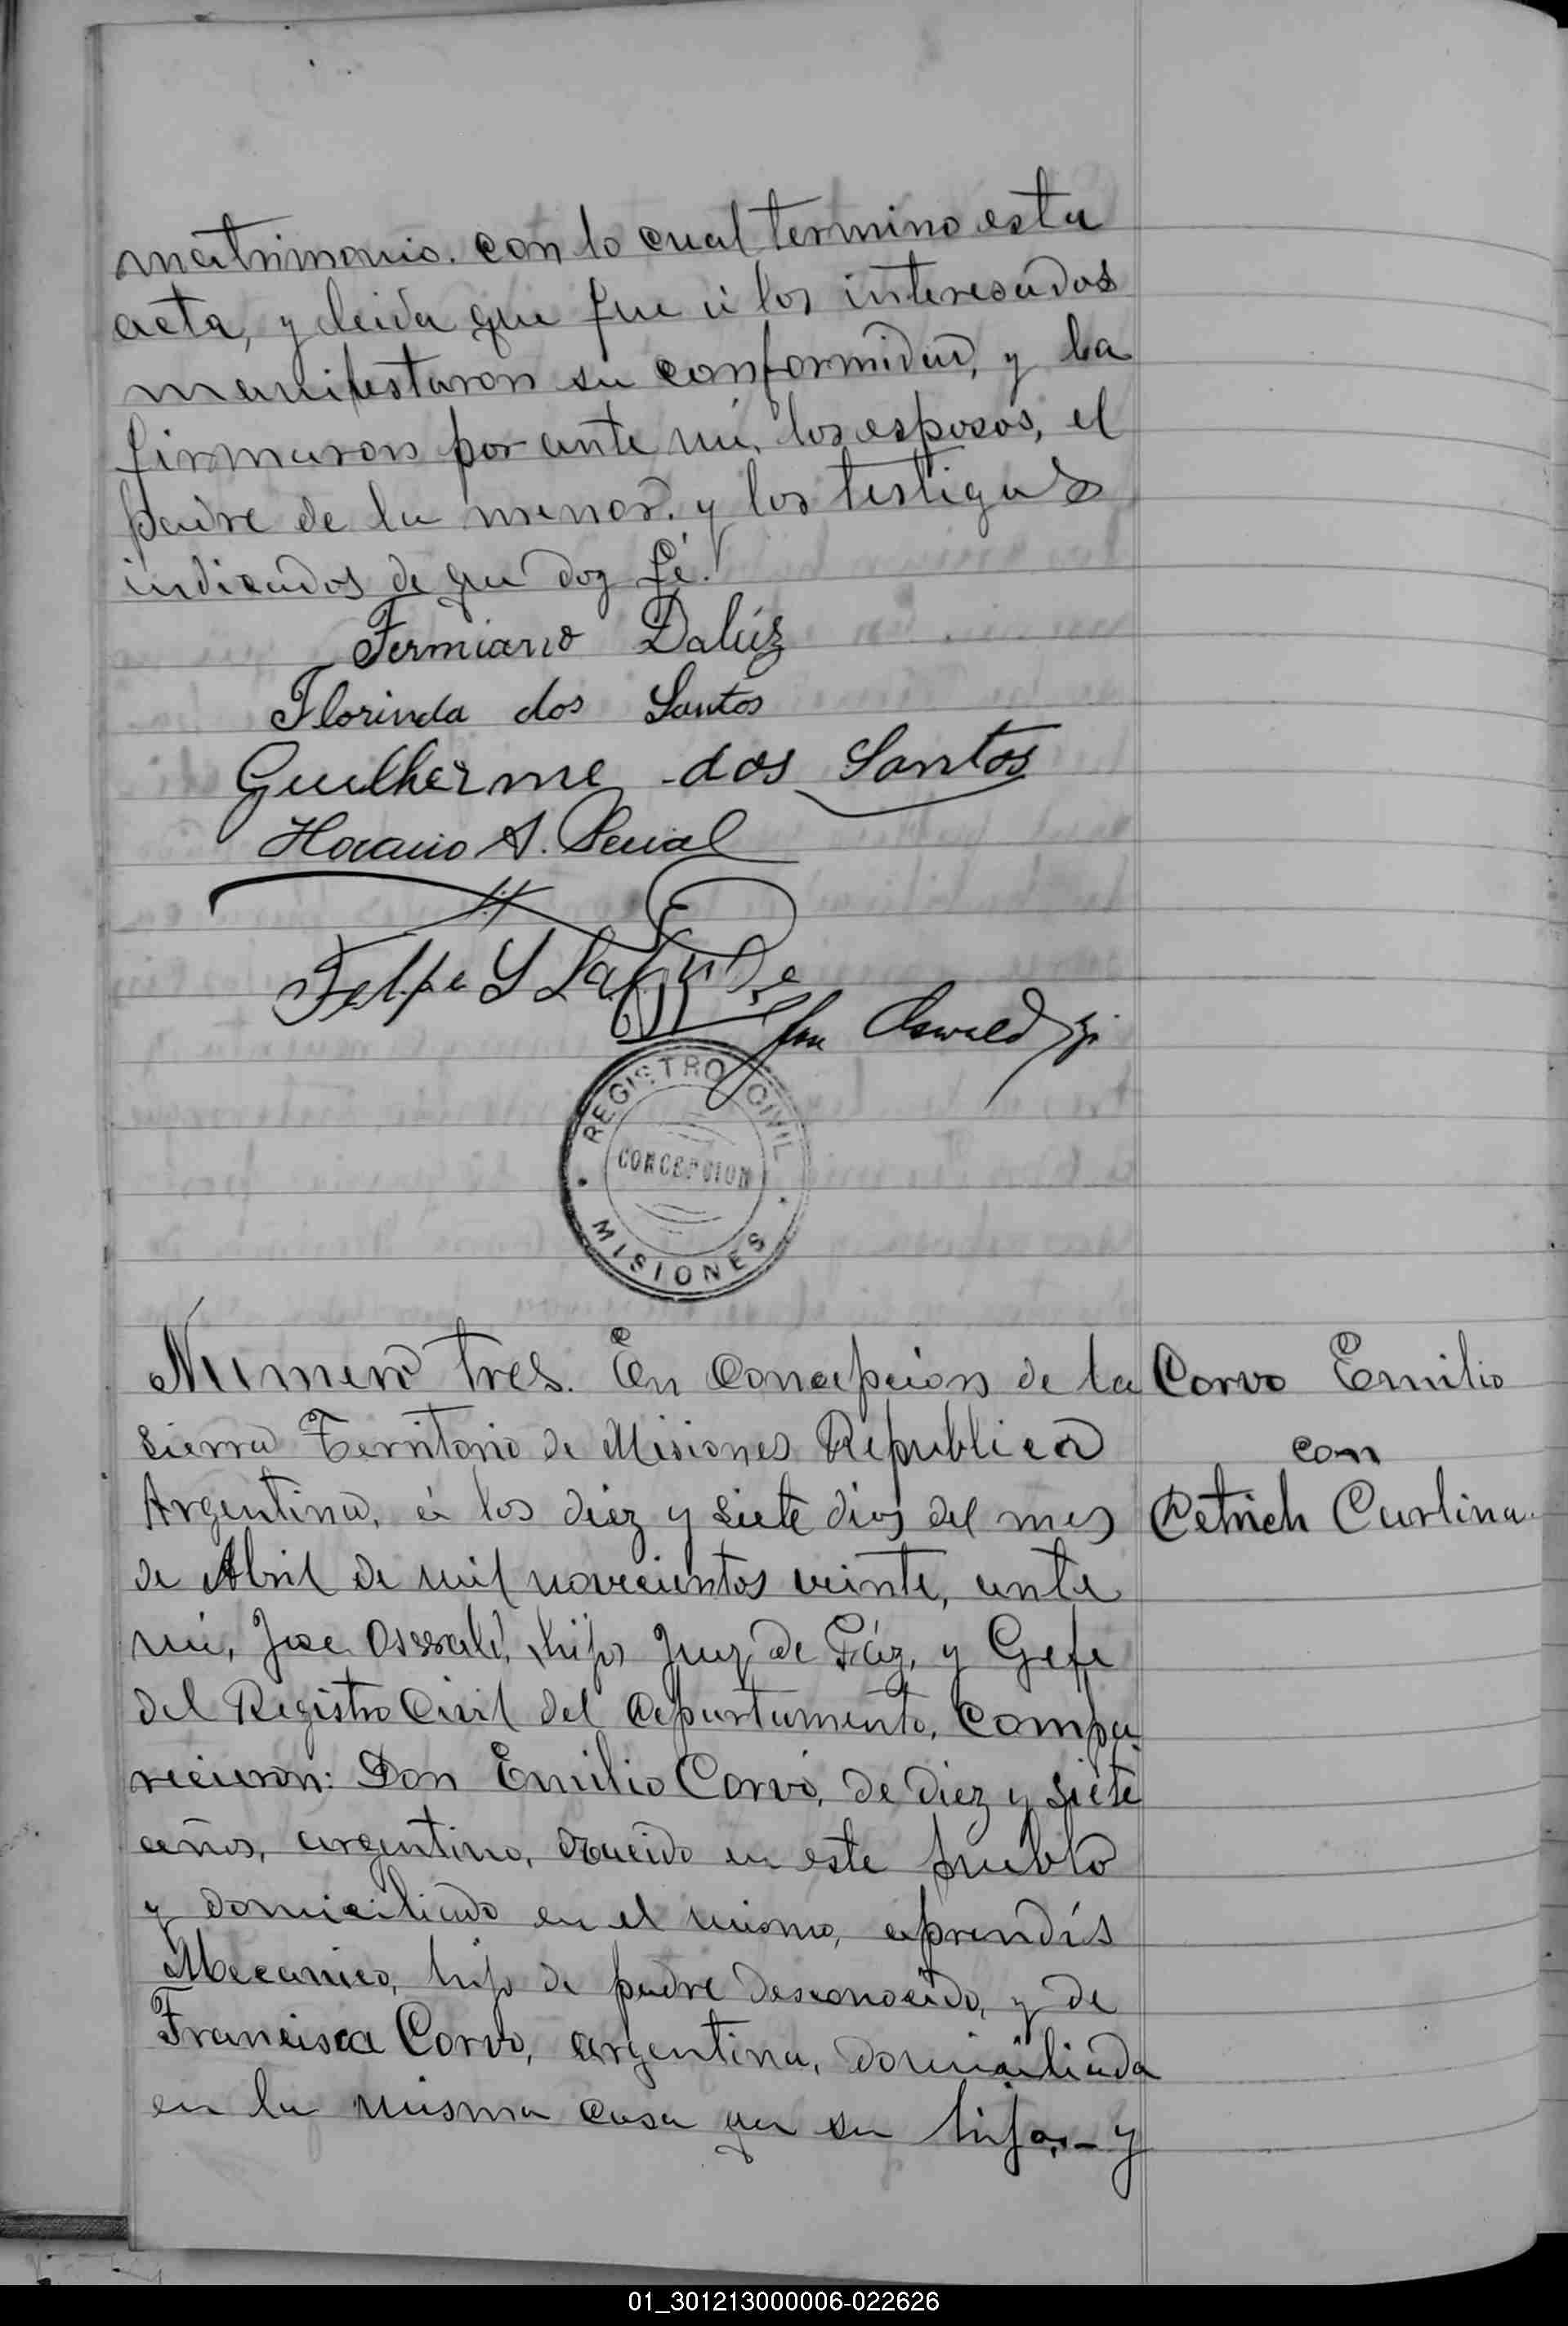 matrimonio. con lo cual termino esta
acta, y leida que fue á los interesados
manifestaron su conformidad, y la
firmaron por ante mi, los esposos, el
padre de la menor. y los testigos
indicados de que doy fé.
Fermiano Dalúz
Florinda dos Santos
Guilherme dos Santos
Horacio A.
Felipe S
Jose Oswald hijo
REGISTRO CIVIL
CONCEPCION
MISIONES
Numero tres. En Concepcion de la
Sierra Territorio de Misiones Republica
Argentina, á los diez y siete dias del mes
de Abril de mil novecientos veinte, ante
mi, Jose Osswald, hijo Juez de Páz, y Gefe
del Registro Civil del departamento, compa-
recieron: Don Emilio Corvo, de diez y siete
años, argentino, nacido en este pueblo
y domiciliado en el mismo, aprendís
Mecanico, hijo de padre desconocido, y de
Francisca Corvo, argentina, domiciliada
en la misma casa que su hijo,- y
Corvo Emilio
con
Petrich Carlina.
01_301213000006-022626